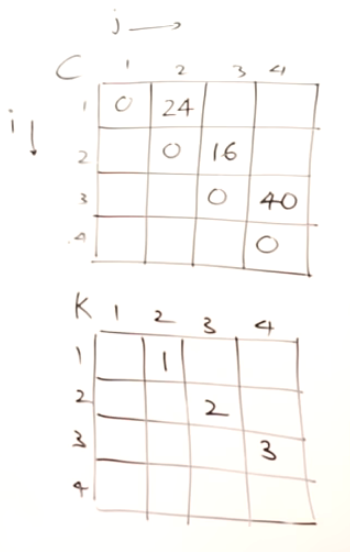 j
C 1 2 3 4
i
1 0 24
2 0 16
3 0 40
4 0
K 1 2 3 4
1 1
2 2
3 3
4